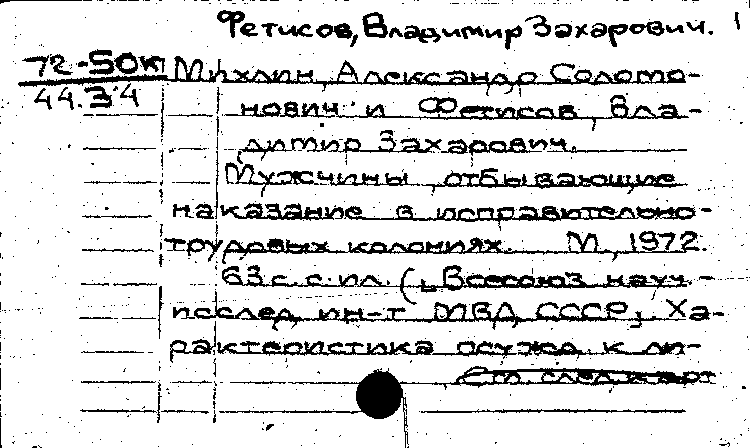 Фетисов, Владимир Захарович. 1
72-50К Михлин, Александр Соломо-
44.34 нович и Фетисов, Вла-
димир Захарович.
Мужчины, отбывающие
наказание в исправительно-
трудовых колониях. М., 1972.
63 с. с ил. (Всесоюз. науч.-
исслед. ин-т МВД СССР; Ха-
рактеристика осужд. к ли-
См. след. карт